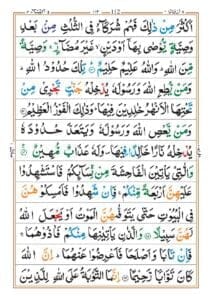 اَكْثَرَ مِنْ ذٰلِكَ فَهُمْ شُرَكَآءُ فِى الثُّلُثِ مِنْۢ بَعْدِ
وَصِيَّةٍ يُّوْصٰى بِهَآ اَوْ دَيْنٍ ۙ غَيْرَ مُضَآرٍّ ۚ وَصِيَّةً
مِّنَ اللّٰهِ ؕ وَاللّٰهُ عَلِيْمٌ حَلِيْمٌ ؕ تِلْكَ حُدُوْدُ اللّٰهِ ؕ
وَمَنْ يُّطِعِ اللّٰهَ وَرَسُوْلَهٗ يُدْخِلْهُ جَنّٰتٍ تَجْرِىْ مِنْ
تَحْتِهَا الْاَنْهٰرُ خٰلِدِيْنَ فِيْهَا ؕ وَذٰلِكَ الْفَوْزُ الْعَظِيْمُ
وَمَنْ يَّعْصِ اللّٰهَ وَرَسُوْلَهٗ وَيَتَعَدَّ حُدُوْدَهٗ
يُدْخِلْهُ نَارًا خَالِدًا فِيْهَا ۪ وَلَهٗ عَذَابٌ مُّهِيْنٌ
وَالّٰتِىْ يَاْتِيْنَ الْفَاحِشَةَ مِنْ نِّسَآئِكُمْ فَاسْتَشْهِدُوْا
عَلَيْهِنَّ اَرْبَعَةً مِّنْكُمْ ۚ فَاِنْ شَهِدُوْا فَاَمْسِكُوْهُنَّ
فِى الْبُيُوْتِ حَتّٰى يَتَوَفّٰهُنَّ الْمَوْتُ اَوْ يَجْعَلَ اللّٰهُ
لَهُنَّ سَبِيْلًا وَالَّذٰنِ يَاْتِيٰنِهَا مِنْكُمْ فَاٰذُوْهُمَا ۚ
فَاِنْ تَابَا وَاَصْلَحَا فَاَعْرِضُوْا عَنْهُمَا ؕ اِنَّ اللّٰهَ
كَانَ تَوَّابًا رَّحِيْمًا اِنَّمَا التَّوْبَةُ عَلَى اللّٰهِ لِلَّذِيْنَ